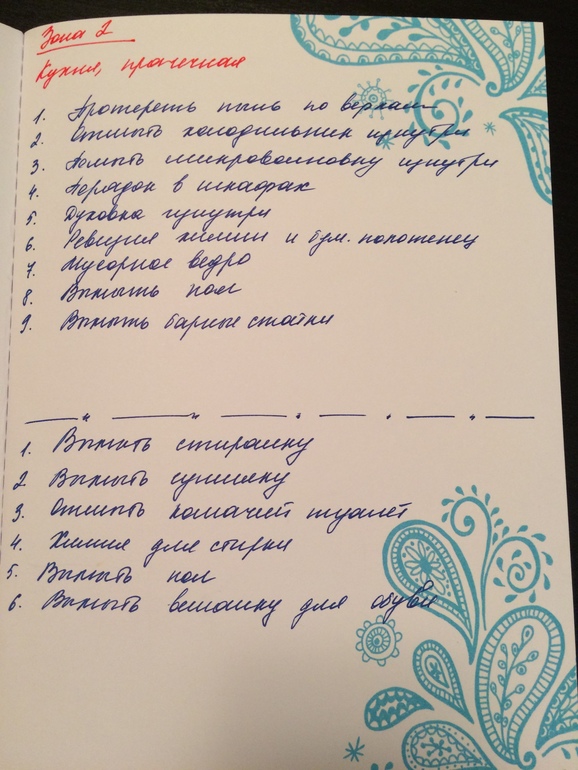 Зона 2
Кухня, прачечная
1. Протереть пыль по верхам
2. Отмыть холодильник изнутри
3. Помыть микроволновку изнутри
4. Порядок в шкафах
5. Духовка изнутри
6. Ревизия химии и бум. полотенец
7. Мусорное ведро
8. Вымыть пол
9. Вымыть барные стойки
1. Вымыть стиралку
2 Вымыть сушилку
3. Отмыть кошачий туалет
4. Химия для стирки
5. Вымыть пол
6. Вымыть вешалку для обуви